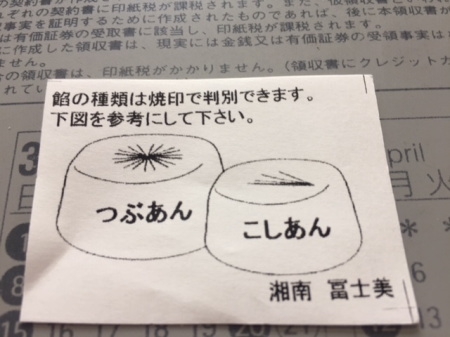 契約書が作成されます。また、仮領収書
事実を証明するために作成されたものであれば、後に本領収書が
は有価証券の受取書に該当し、印紙税が課税されます。
に作成した領収書は、現実には金銭又は有価証券の受領事実は
の領収書は、印紙税がかかりません。(領収書にクレジットカ
餡の種類は焼印で判別できます。
下図を参考にして下さい。
つぶあん
こしあん
湘南 冨士美
3
pril
日
月 火
1
8
5 6
15 16 17 18 19 20 21
12 13